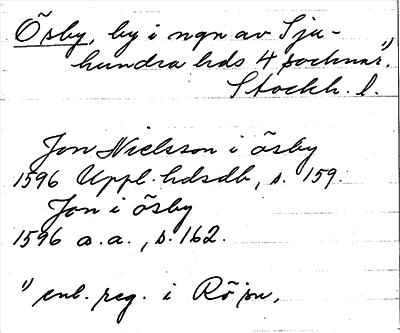 Õsby, by i ngn av Sju-
hundra hds 4 socknar,¹⁾
Stockh. l.
Jon Nielsson i õsby
1596 Uppl. hdsdb, s. 159.
Jon i õsby
1596 a.a., s. 162.
¹⁾ enl. reg. i Rõ sn.